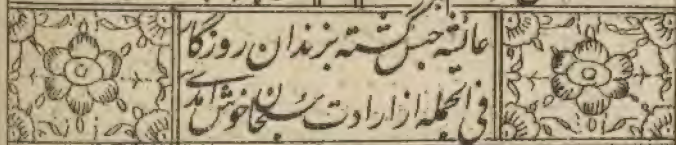 عائشه حبس گشته بزندان روزگار
فی الجمله از ارادت سبحان خوش آمدی